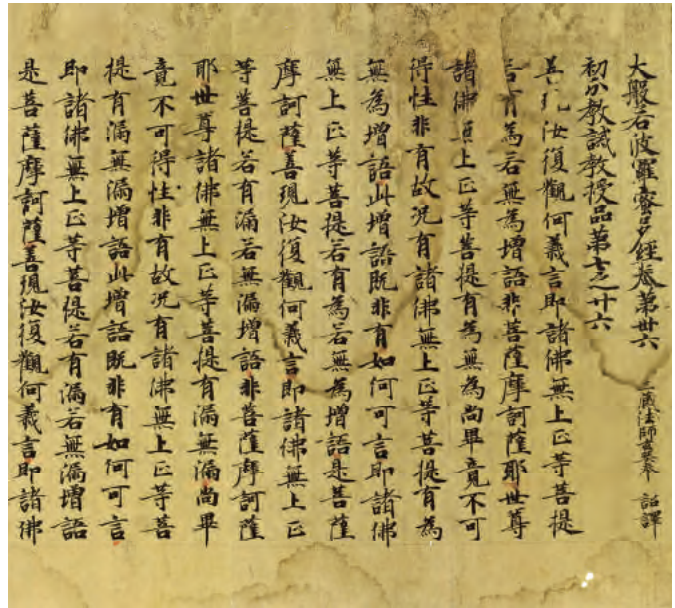 大般若波羅蜜多經卷第卅六 三藏法師玄奘奉 詔譯
初分教誡教授品第七之廿六
善現汝復觀何義言即諸佛無上正等菩提
若有為若無為增語非菩薩摩訶薩耶世尊
諸佛無上正等菩提有為無為尚畢竟不可
得性非有故况有諸佛無上正等菩提有為
無為增語此增語既非有如何可言即諸佛
無上正等菩提若有為若無為增語是菩薩
摩訶薩善現汝復觀何義言即諸佛無上正
等菩提若有漏若無漏增語非菩薩摩訶薩
耶世尊諸佛無上正等菩提有漏無漏尚畢
竟不可得性非有故况有諸佛無上正等菩
提有漏無漏增語此增語既非有如何可言
即諸佛無上正等菩提若有漏若無漏增語
是菩薩摩訶薩善現汝復觀何義言即諸佛